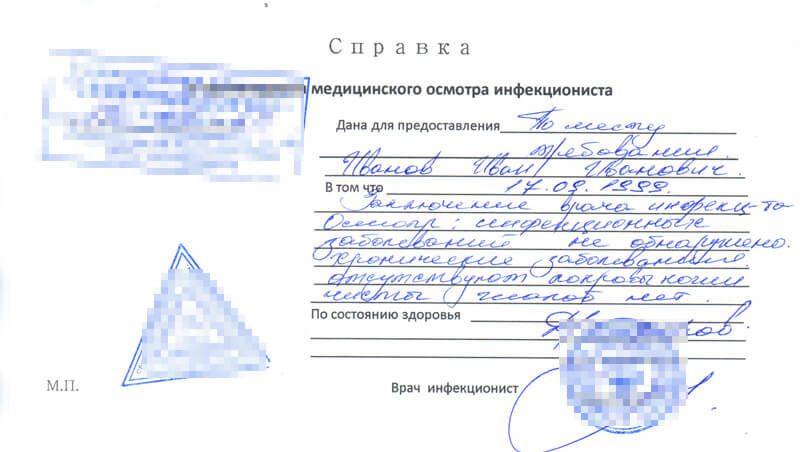 Справка
медицинского осмотра инфекциониста
Дана для предоставления По месту
требования.
Иванов Иван Иванович.
В том что 17.09.1999.
Заключение врача инфекц-та
Осмотр: инфекционных
заболеваний не обнаружено.
Хронические заболевания
отсутствуют покровы кожи
чисты жалоб нет.
По состоянию здоровья
М.П.
Врач инфекционист